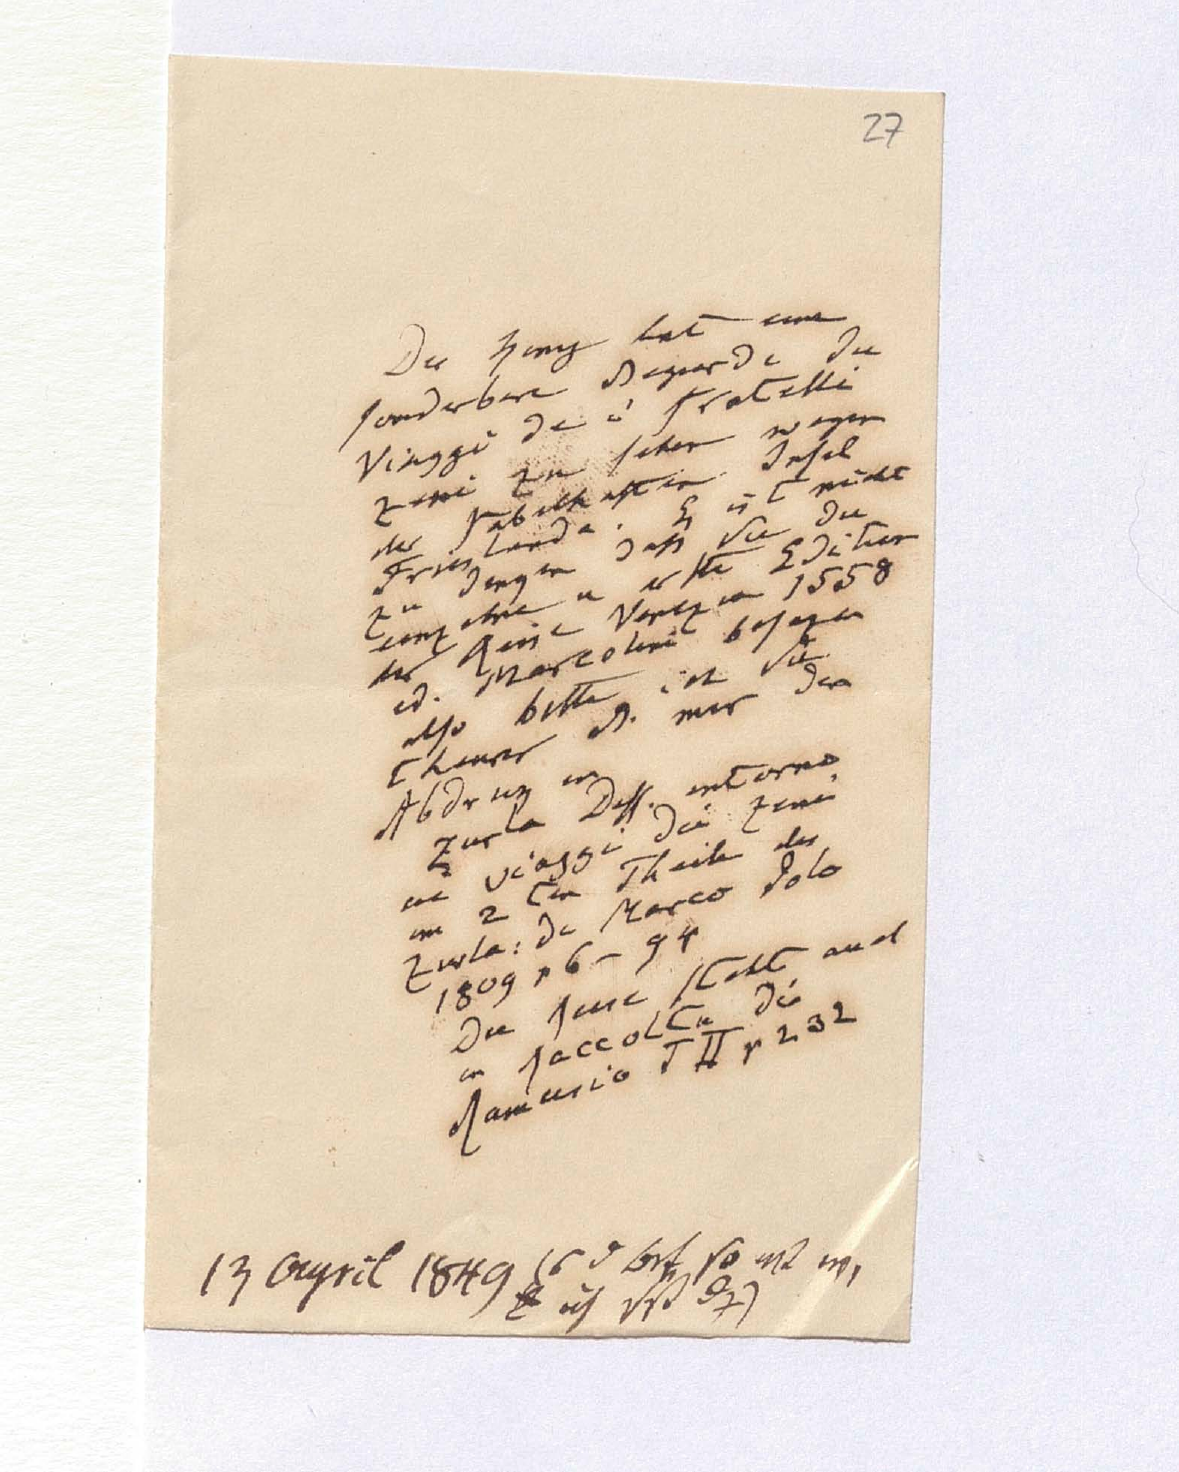 27
Der König hat eine
sonderbare Begierde die
Viaggi de i fratelli
Zeni zu sehen wegen
der fabelhaften Insel
Frieslanda. Es ist nicht
zu denken daß Sie die
einzelne u erste Edition
der Reise Venezia 1558
ed. Marcolini besizen
also bitte ich Sie
theurer B. mir den
Abdruk in
Zurla Diss. intorno
ai viaggi dei Zeni
im 2ten Theile des
Zurla: di Marco Polo
1809 p 6 – 94
Die Reise steht auch
in Raccolta di
Ramusio T II p 232
13 April 1849